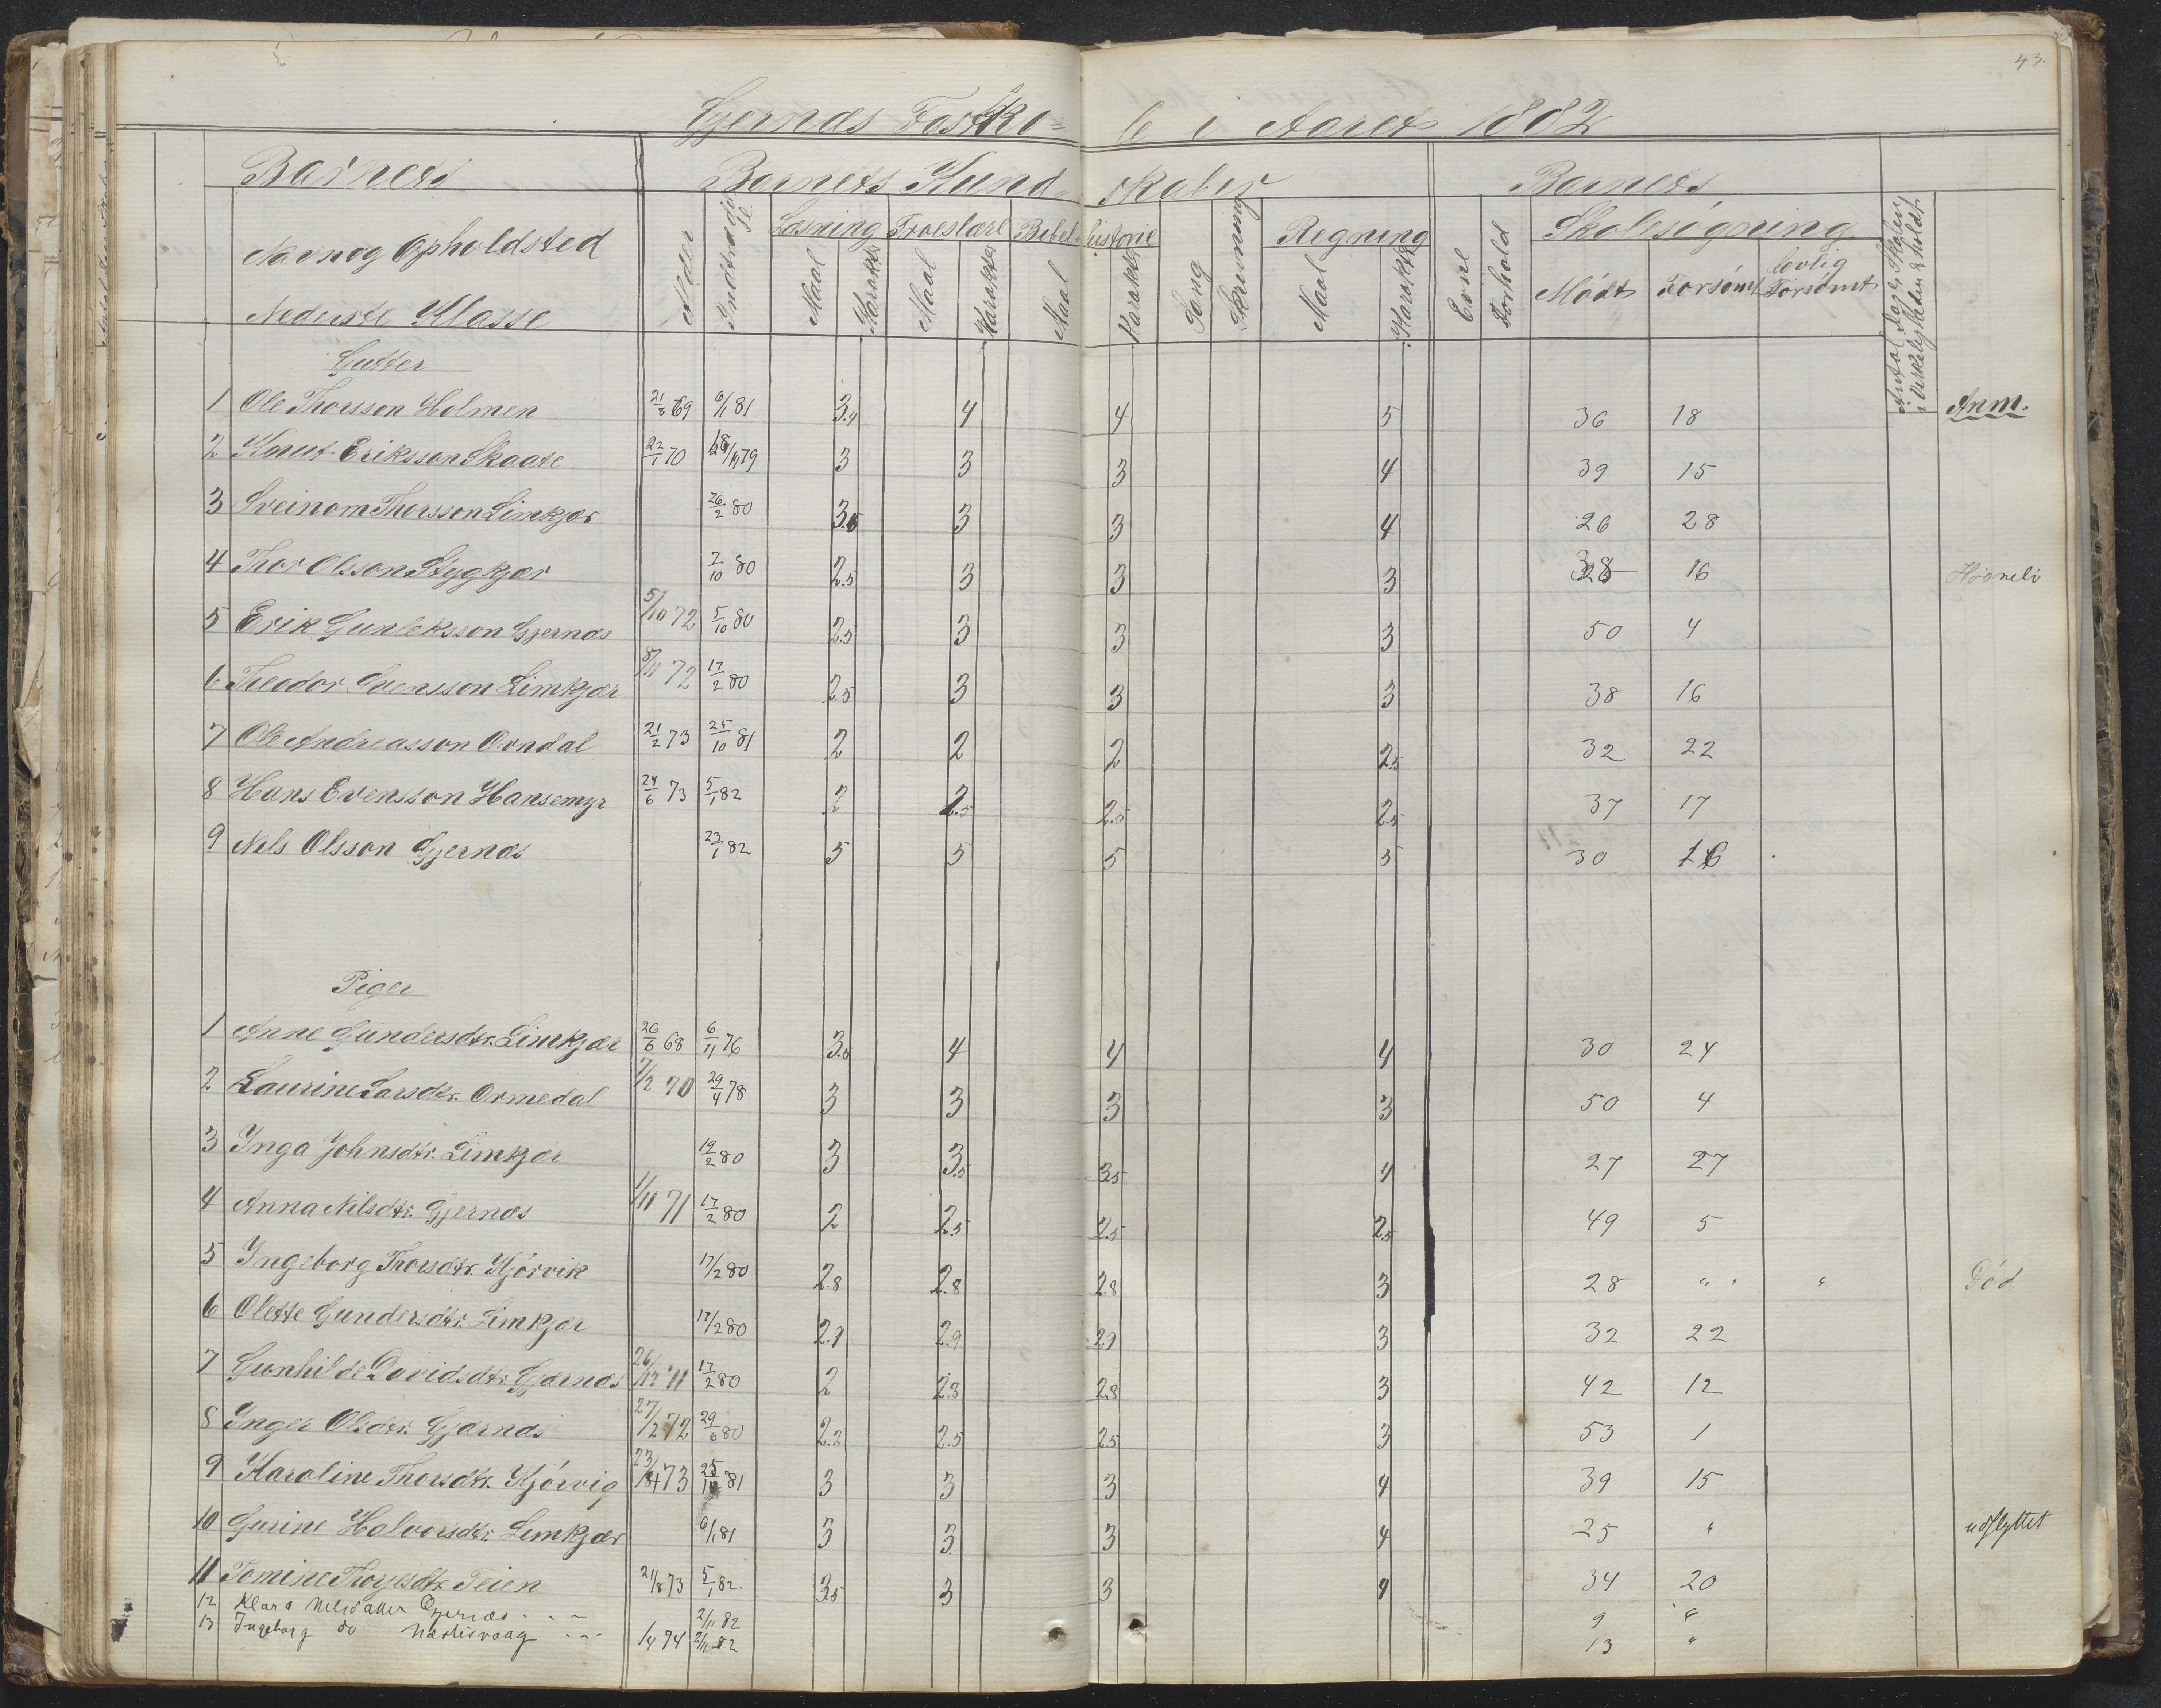 43.
Gjernæs Fastsko- le i Aaret 1882
Barnets Barnets Kund- skaber Barnets
Navn og Opholdsted Alder Indtrædelse Læsning Troeslære Bibel- historie Sang Skrivning Regning Evne Forhold Skolesøgning Antal Dage Skolen i Virkeligheden er holdt
Maal Karakter Maal Karakter Maal Karakter Maal Karakter Mødt Forsømt lovlig Forsømt
Nederste Klasse
Gutter
1 Ole Thorsson Holmen 21/8 69 6/1 81 3.4 4 4 5 36 18 Anm.
2 Knut Eriksson Skaate 22/1 70 79 3 3 3 4 39 15
3 Sveinom Thorsson Limkjær 26/2 80 3.5 3 3 4 26 28
4 Thor Olsson Stygkjær 7/10 80 2.5 3 3 3 38 16 Høoneli
5 Erik Gunleksson Gjernæs 5/10 72 5/10 80 2.5 3 3 3 50 4
6 Theodor Svensson Limkjær 8/11 72 17/2 80 2.5 3 3 3 38 16
7 Ole Andreasson Ovndal 21/2 73 25/10 81 2 2 2 2.5 32 22
8 Hans Evensson Hansemyr 24/6 73 5/1 82 2 2.5 2.5 2.5 37 17
9 Nils Olsson Gjernæs 23/1 82 5 5 5 5 30 16
Piger
1 Anne Gundersdtr. Limkjær 26/6 68 6/11 76 3.5 4 4 4 30 24
2 Laurine Larsdtr. Ormedal 7/2 70 29/4 78 3 3 3 3 50 4
3 Inga Johnsdtr. Limkjær 19/2 80 3 3.5 3.5 4 27 27
4 Anna Nilsdtr. Gjernæs 1/11 71 17/2 80 2 2.5 2.5 2.5 49 5
5 Ingeborg Thorsdtr. Kjörvik 17/2 80 2.8 2.8 2.8 3 28 " " " Död
6 Olette Gundersdtr. Limkjær 17/2 80 2.9 2.9 2.9 3 32 22
7 Gunhilde Davidsdtr. Gjærnæs 26/12 71 17/2 80 2 2.8 2.8 3 42 12
8 Inger Olsdtr. Gjærnæs 27/2 72 29/6 80 2.2 2.5 2.5 3 53 1
9 Karoline Thorsdtr. Kjörvig 73 25/10 81 3 3 3 4 39 15
10 Gurine Halvorsdtr. Limkjær 6/1 81 3 3 3 4 25 " udflyttet
11 Tomine Thoresdtr. Teien 21/8 73 5/1 82. 3.5 3 3 4 34 20
12 Klara Nilsdatter Gjernæs - - - 2/11 82 9 "
13 Ingeborg do Næstisvaag - - - 1/4 74 2/11 82 13 "